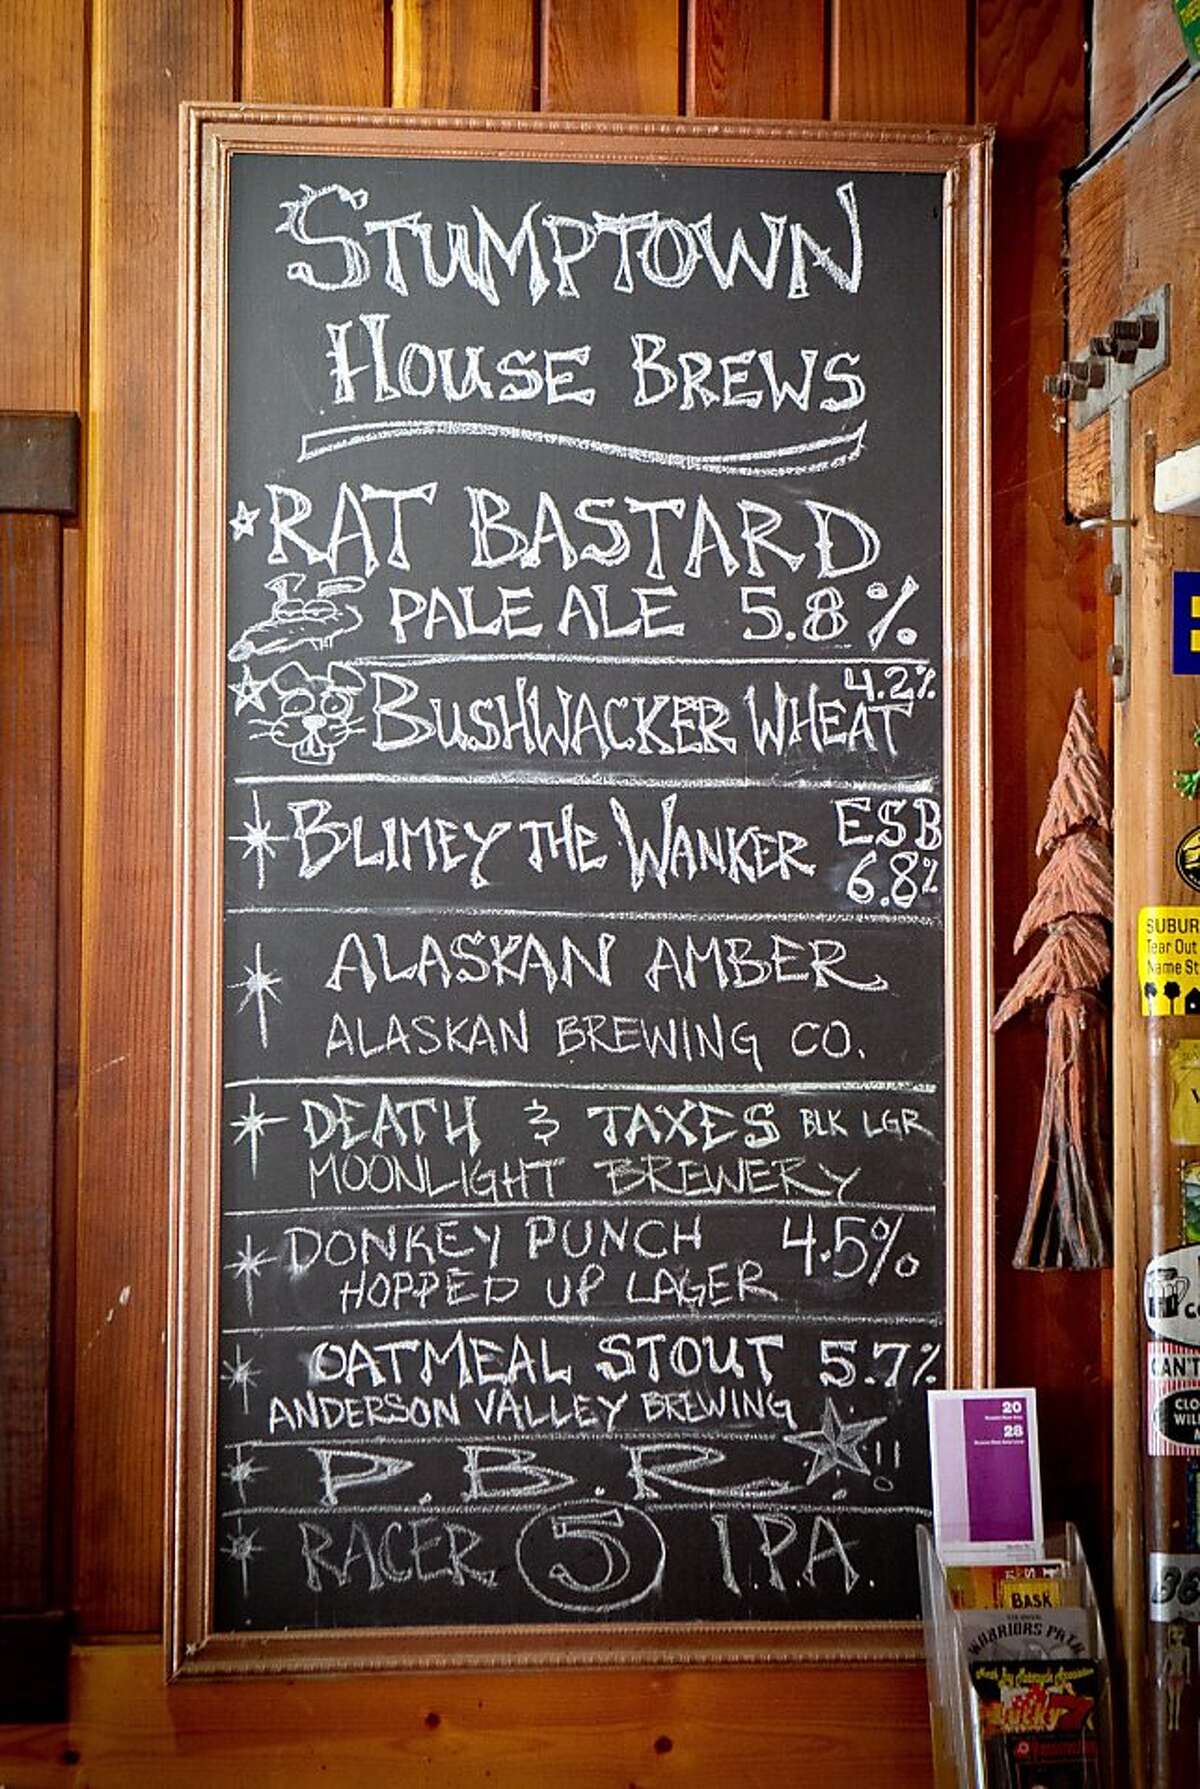 STUMPTOWN
HOUSE BREWS
RAT BASTARD
PALE ALE 5.8%
BUSHWACKER WHEAT 4.2%
BLIMEY THE WANKER ESB
6.8%
ALASKAN AMBER
ALASKAN BREWING CO.
DEATH & TAXES BLK LGR
MOONLIGHT BREWERY
DONKEY PUNCH 4.5%
HOPPED UP LAGER
OATMEAL STOUT 5.7%
ANDERSON VALLEY BREWING
P.B.R. !!
RACER 5 I.P.A.
20
28
BASK
WARRIORS PATH
Lucky 7
SUBUR
Tear Out
Name St
CAN'T
CLO
WIL